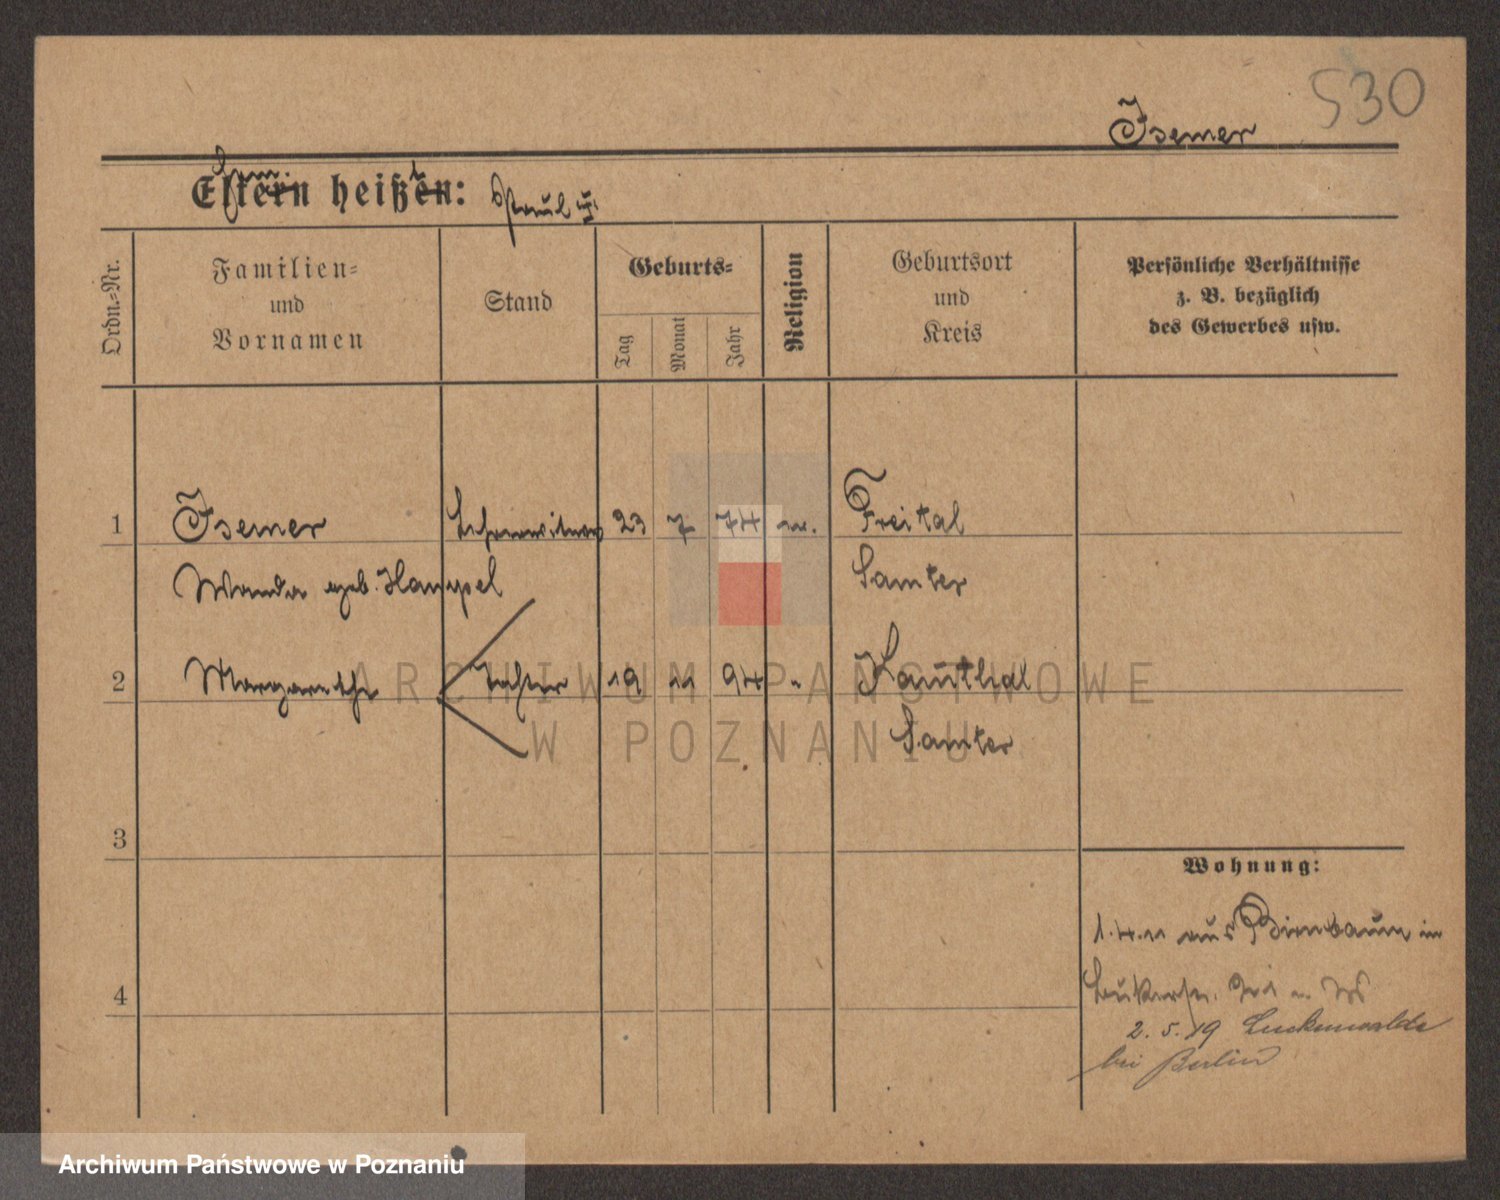 530
Isemer
Eltern heißen: Paul
Ordn.-Nr.
Familien-
und
Vornamen
Stand
Geburts-
Tag
Monat
Jahr
Religion
Geburtsort
und
Kreis
Persönliche Verhältnisse
z. B. bezüglich
des Gewerbes usw.
1 Isemer Lehrerwitwe 23 7 74 ev. Freital
Wanda geb. Hampel Samter
2 Margarethe Tochter 19 11 94 " Kauthal
Samter
3
Wohnung:
1.4.11 aus Birnbaum in
4
2. 5. 19 Luckenwalde
bei Berlin
ARCHIWUM PAŃSTWOWE
W POZNANIU
Archiwum Państwowe w Poznaniu